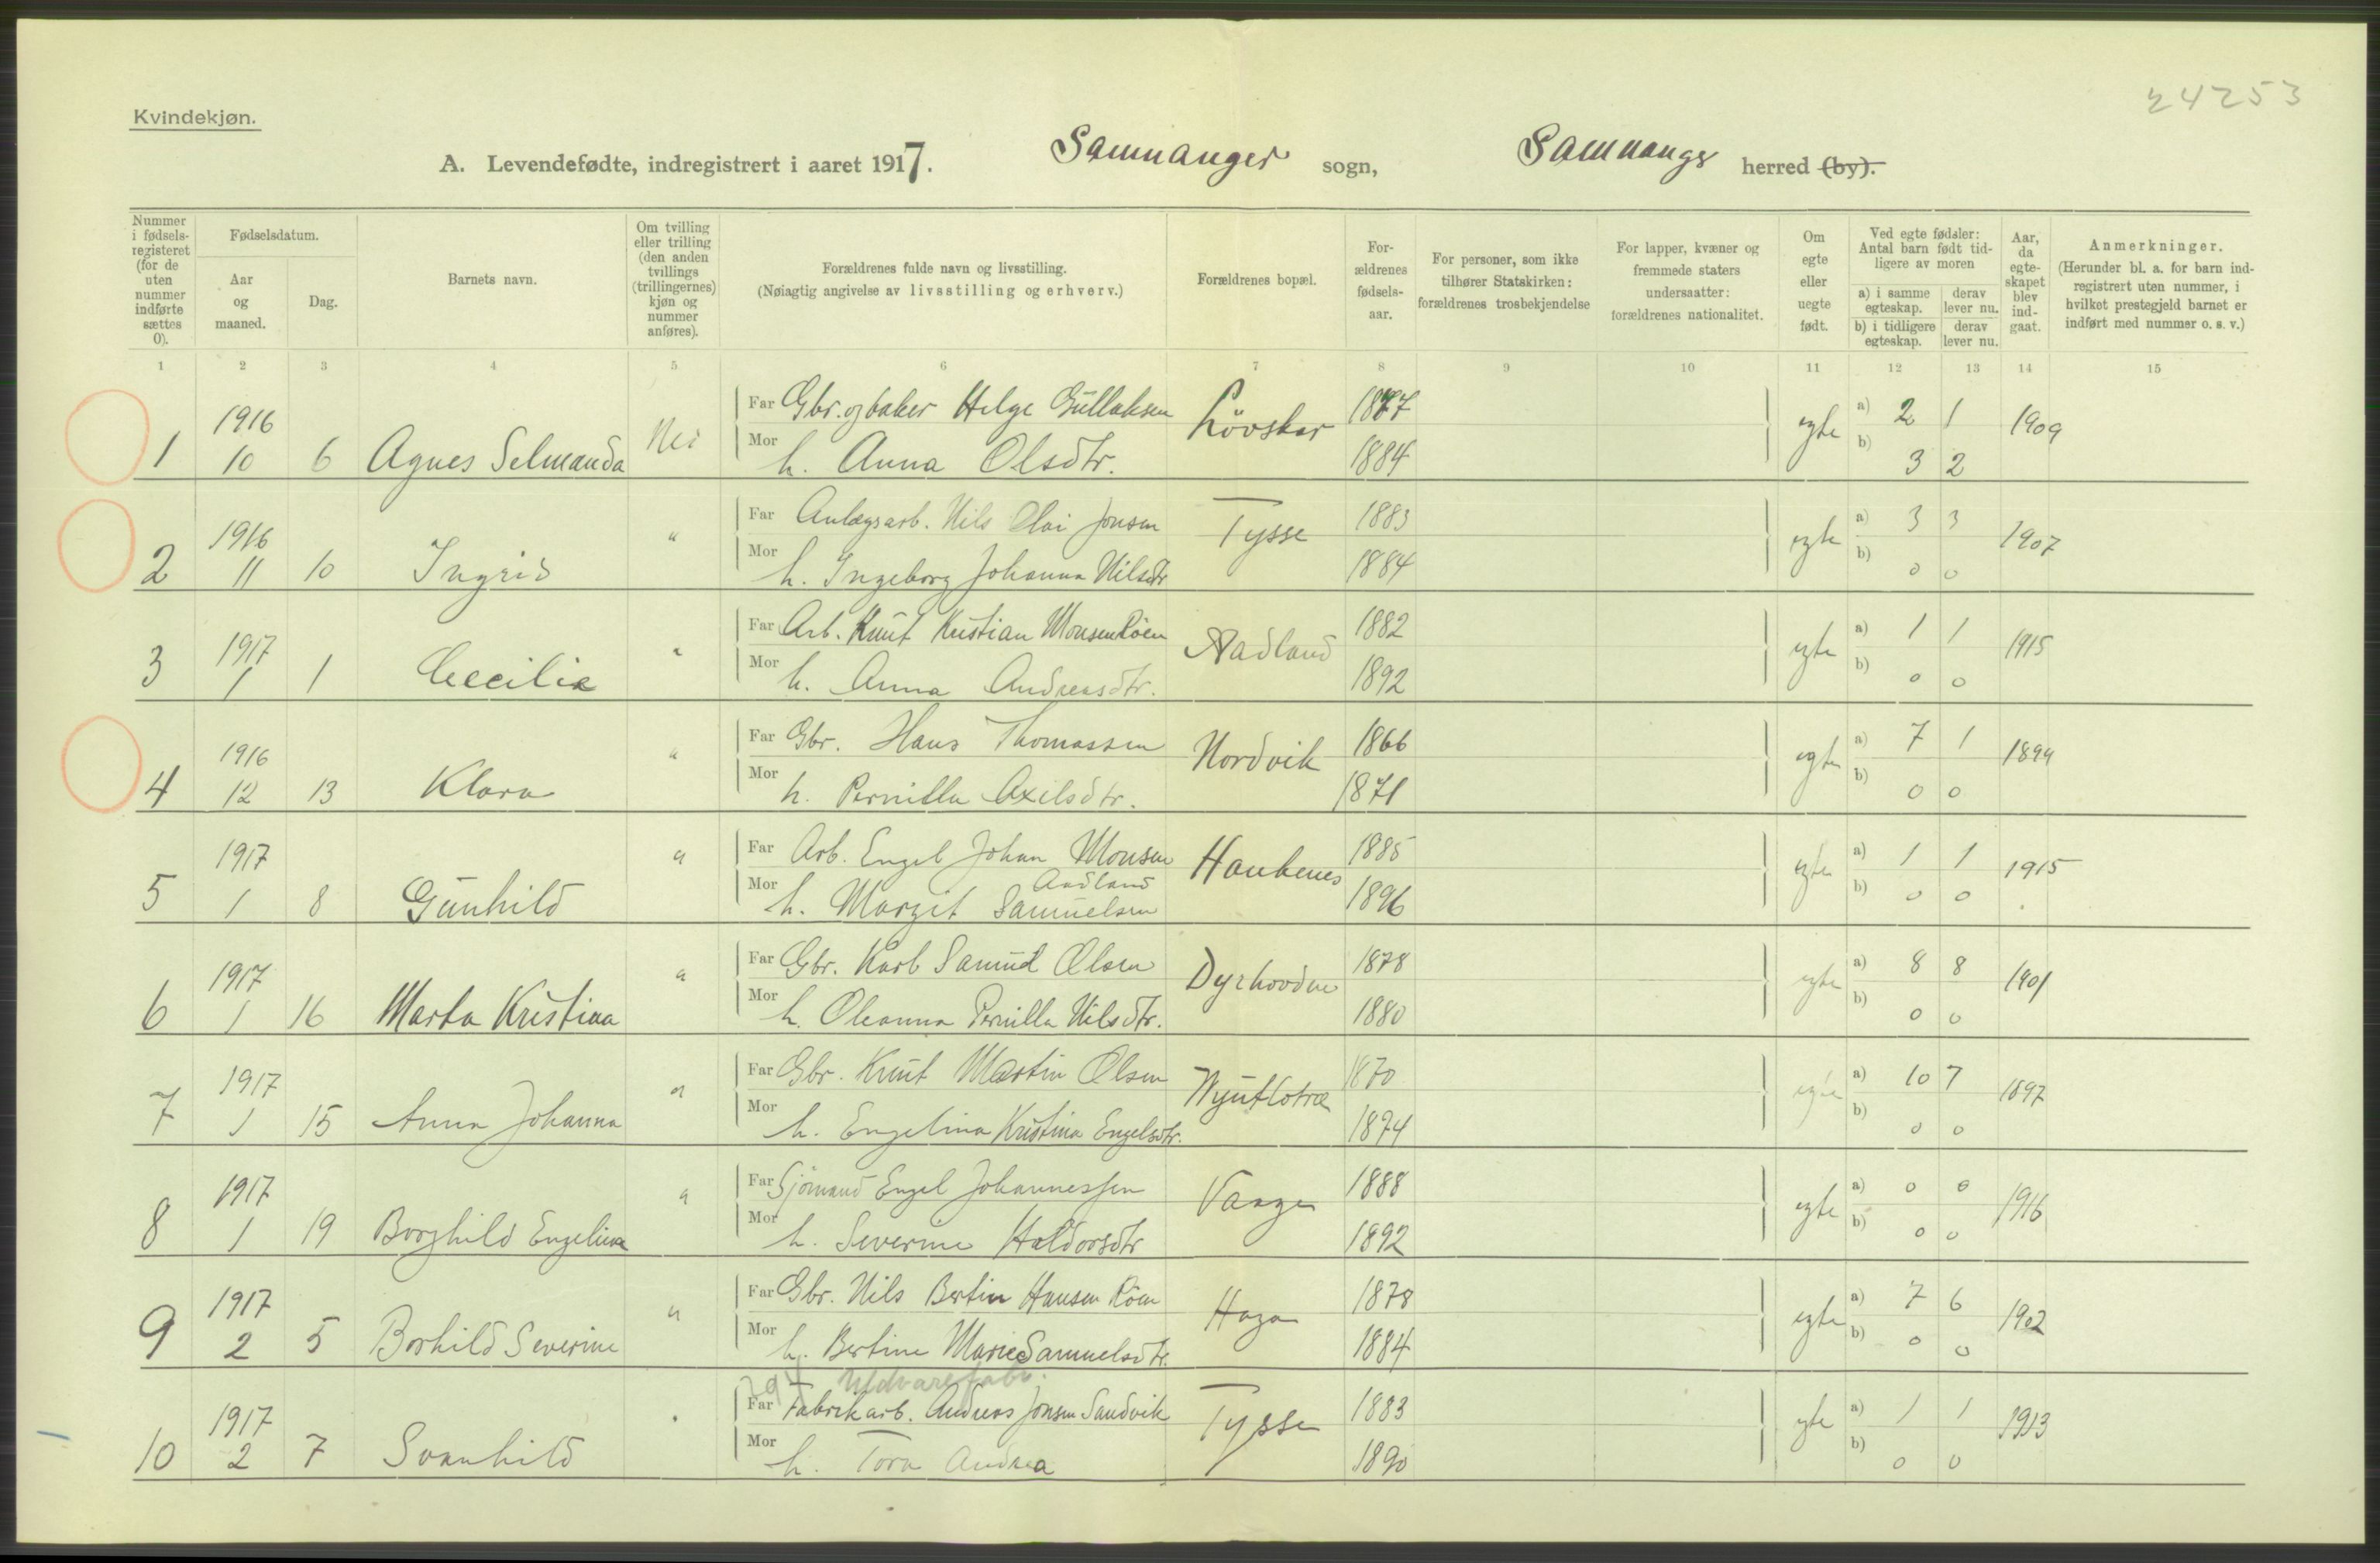 24253
Kvindekjøn.
A. Levendefødte, indregistrert i aaret 1917. Samnanger sogn, Samnanger herred (by).
Nummer i fødsels-registeret (for de uten nummer indførte sættes 0).
Fødselsdatum.
Aar og maaned.
Dag.
Barnets navn.
Om tvilling eller trilling (den anden tvillings (trillingernes) kjøn og nummer anføres).
Forældrenes fulde navn og livsstilling.
(Nøiagtig angivelse av livsstilling og erhverv.)
Forældrenes bopæl.
For-ældrenes fødsels-aar.
For personer, som ikke tilhører Statskirken: forældrenes trosbekjendelse
For lapper, kvæner og fremmede staters undersaatter: forældrenes nationalitet.
Om egte eller uegte født.
Ved egte fødsler: Antal barn født tid-ligere av moren
a) i samme egteskap. derav lever nu.
b) i tidligere egteskap. derav lever nu.
Aar, da egte-skapet blev ind-gaat.
Anmerkninger.
(Herunder bl. a. for barn ind-registrert uten nummer, i hvilket prestegjeld barnet er indført med nummer o. s. v.)
1 2 3 4 5 6 7 8 9 10 11 12 13 14 15
1 1916 10 6 Agnes Selmanda Nei Far Gbr. og baker Helge Gullaksen Lövskar 1877 egte a) 2 1 1909
Mor h. Anna Olsdtr. 1884 b) 3 2
2 1916 11 10 Ingrid " Far Anlægsarb. Nils Olai Jonsen Tysse 1883 egte a) 3 3 1907
Mor h. Ingeborg Johanna Nilsdtr 1884 b) 0 0
3 1917 1 1 Cecilie " Far Arb. Knut Kristian Monsen Röen Aadland 1882 egte a) 1 1 1915
Mor h. Anna Andreasdtr. 1892 b) 0 0
4 1916 12 13 Klara " Far Gbr. Hans Thomassen Nordvik 1866 egte a) 7 1 1899
Mor h. Pernilla Axelsdtr. 1871 b) 0 0
5 1917 1 8 Gunhild " Far Arb. Engel Johan Monsen Aadland Haukenes 1885 egte a) 1 1 1915
Mor h. Margit Samuelsen 1896 b) 0 0
6 1917 1 16 Marta Kristina " Far Gbr. Karl Samuel Olsen Dyrhovden 1878 egte a) 8 8 1901
Mor h. Oleanna Pernilla Nilsdtr. 1880 b) 0 0
7 1917 1 15 Anna Johanna " Far Gbr. Knut Martin Olsen 1870 egte a) 10 7 1897
Mor h. Engelina Kristina Engelsdtr. 1874 b) 0 0
8 1917 1 19 Borghild Engelina " Far Sjömand Engel Johannessen Vaage 1888 egte a) 0 0 1916
Mor h. Severine Haldorsdtr 1892 b) 0 0
9 1917 2 5 Borhild Severine " Far Gbr. Nils Bertin Hansen Röen Haga 1878 egte a) 7 6 1902
Mor h. Bertine Marie Samuelsdtr. 1884 b) 0 0
Uldvarefabr.
10 1917 2 7 Svanhild " Far Fabrikarb. Andreas Jonsen Sandvik Tysse 1883 egte a) 1 1 1913
Mor h. Tora Andrea 1890 b) 0 0